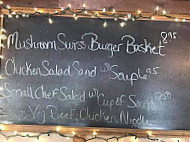 8.95
Mushroom Swiss Burger Basket
Chicken Salad Sand w/ Soup 8.95
Small Chef Salad w/ Cup of Soup 8.50
Veg Beef, Chicken Noodle